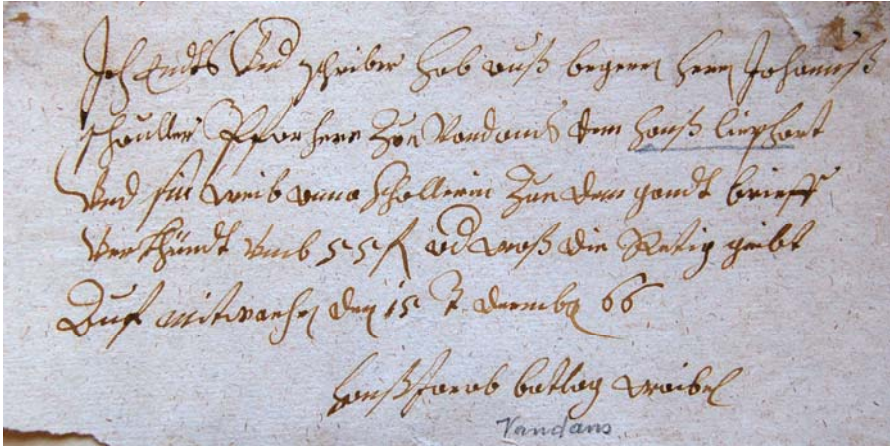 Ich Endts Und schriber hab auß begeren heren Johanneß
schouller Pffarhere Zue Vandanß dem hanß liephart
Und sin weib anna schollerin Zue dem gandt brieff
Verkhündt Umb 55 f od waß die Ratig geibt
Auf mitwachen den 15 decemb 66
hanß Jacob batlog waibel
Vandans.